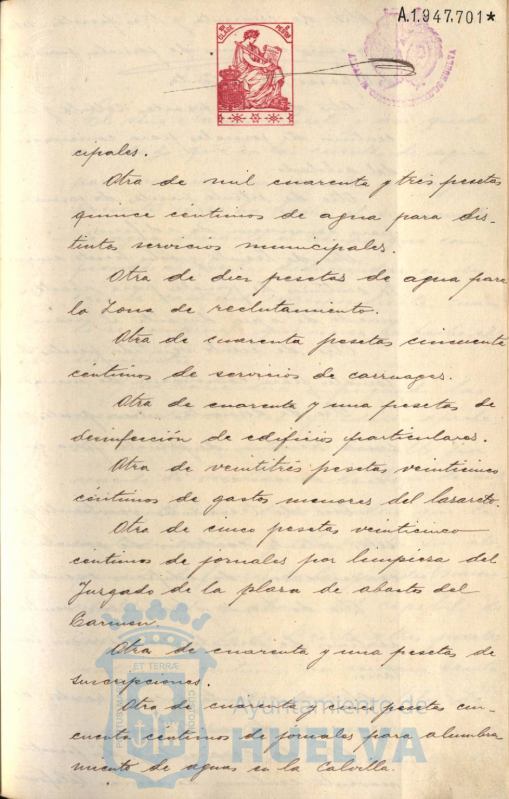 A.1.947.701*
cipales.
Otra de mil cuarenta y tres pesetas
quince céntimos de agua para dis-
tintos servicios municipales.
Otra de diez pesetas de agua para
la Zona de reclutamiento.
Otra de cuarenta pesetas cincuenta
céntimos de servicios de carruages.
Otra de cuarenta y una pesetas de
desinfección de edificios particulares.
Otra de veintitrés pesetas veinticinco
céntimos de gastos menores del lazareto.
Otra de cinco pesetas veinticinco
céntimos de jornales por limpieza del
Juzgado de la plaza de abastos del
Carmen.
Otra de cuarenta y una pesetas de
suscripciones.
Otra de cuarenta y pesetas cin-
cuenta céntimos de jornales para alumbra
miento de aguas en la Calvilla.
ET TERRÆ
Ayuntamiento de
HUELVA